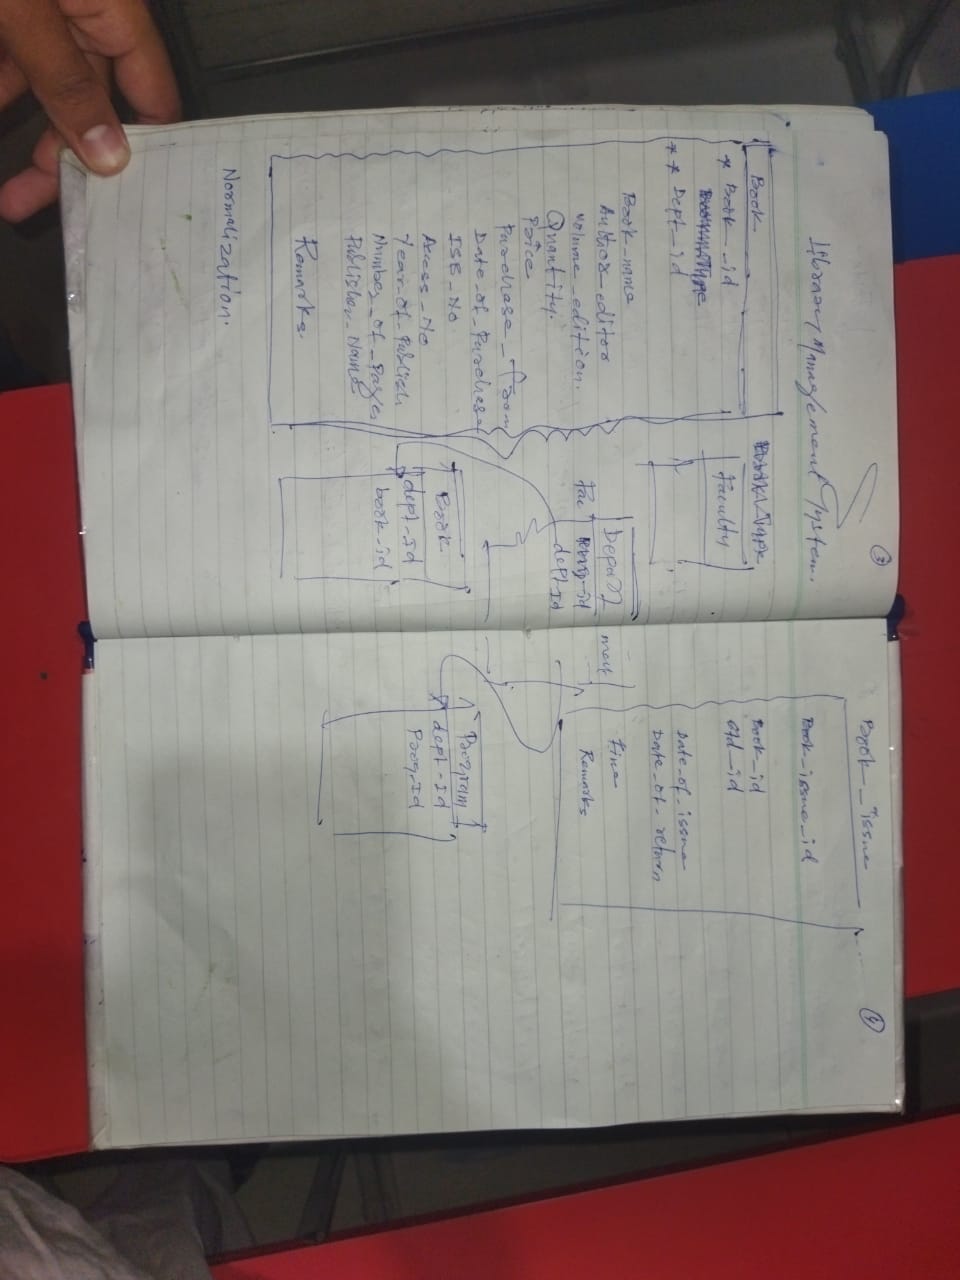 Library Management System.
3
Book
* Book_id
** Dept_id
Book-name
Author_editor
Volume_edition.
Quantity.
Price
Purchase_from
Date_of_Purchase
ISB_No
Access_No
Year_of_Publish
Number_of_Pages
Publisher_Name
Remarks.
Normalization.
Faculty
Department
Fac
dept-Id
Book
dept-Id
book-id
4
Book_issue
Book_issue_id
Book_id
std_id
Date_of_issue
Date_of_return
Fine
Remarks
Program
dept-Id
Prog-Id